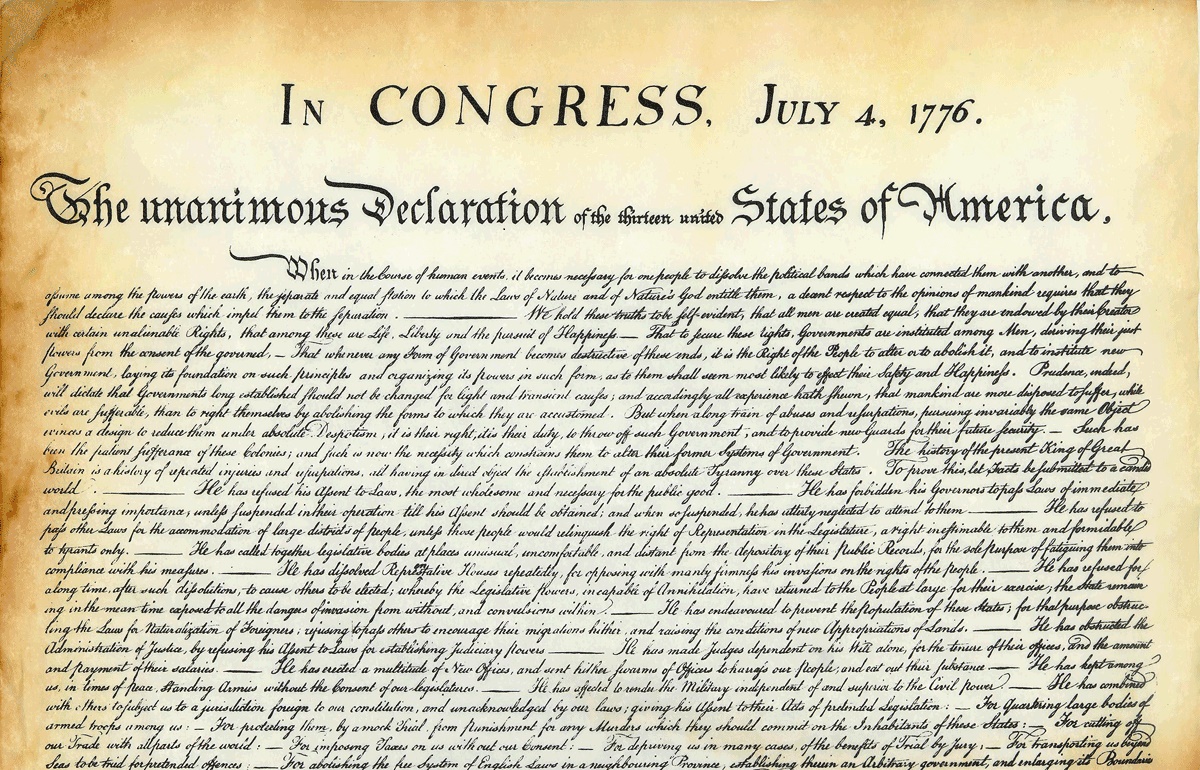 IN CONGRESS, JULY 4, 1776.
The unanimous Declaration of the thirteen united States of America.
When in the Course of human events, it becomes necessary for one people to dissolve the political bands which have connected them with another, and to
assume among the powers of the earth, the separate and equal station to which the Laws of Nature and of Nature's God entitle them, a decent respect to the opinions of mankind requires that they
should declare the causes which impel them to the separation. ——— We hold these truths to be self-evident, that all men are created equal, that they are endowed by their Creator
with certain unalienable Rights, that among these are Life, Liberty and the pursuit of Happiness.— That to secure these rights, Governments are instituted among Men, deriving their just
powers from the consent of the governed,— That whenever any Form of Government becomes destructive of these ends, it is the Right of the People to alter or to abolish it, and to institute new
Government, laying its foundation on such principles and organizing its powers in such form, as to them shall seem most likely to effect their Safety and Happiness. Prudence, indeed,
will dictate that Governments long established should not be changed for light and transient causes; and accordingly all experience hath shewn, that mankind are more disposed to suffer, while
evils are sufferable, than to right themselves by abolishing the forms to which they are accustomed. But when a long train of abuses and usurpations, pursuing invariably the same Object
evinces a design to reduce them under absolute Despotism, it is their right, it is their duty, to throw off such Government, and to provide new Guards for their future security.— Such has
been the patient sufferance of these Colonies; and such is now the necessity which constrains them to alter their former Systems of Government. The history of the present King of Great
Britain is a history of repeated injuries and usurpations, all having in direct object the establishment of an absolute Tyranny over these States. To prove this, let Facts be submitted to a candid
world. ——— He has refused his Assent to Laws, the most wholesome and necessary for the public good. ——— He has forbidden his Governors to pass Laws of immediate
and pressing importance, unless suspended in their operation till his Assent should be obtained; and when so suspended, he has utterly neglected to attend to them ——— He has refused to
pass other Laws for the accommodation of large districts of people, unless those people would relinquish the right of Representation in the Legislature, a right inestimable to them and formidable
to tyrants only. ——— He has called together legislative bodies at places unusual, uncomfortable, and distant from the depository of their Public Records, for the sole purpose of fatiguing them into
compliance with his measures. ——— He has dissolved Representative Houses repeatedly, for opposing with manly firmness his invasions on the rights of the people. ——— He has refused for a
long time, after such dissolutions, to cause others to be elected; whereby the Legislative powers, incapable of Annihilation, have returned to the People at large for their exercise; the State remain
ing in the mean time exposed to all the dangers of invasion from without, and convulsions within. ——— He has endeavoured to prevent the population of these States; for that purpose obstruc-
ting the Laws for Naturalization of Foreigners; refusing to pass others to encourage their migrations hither, and raising the conditions of new Appropriations of Lands. ——— He has obstructed the
Administration of Justice, by refusing his Assent to Laws for establishing Judiciary powers ——— He has made Judges dependent on his Will alone, for the tenure of their offices, and the amount
and payment of their salaries ——— He has erected a multitude of New Offices, and sent hither swarms of Officers to harass our people, and eat out their substance ——— He has kept among
us, in times of peace, Standing Armies without the Consent of our legislatures. ——— He has affected to render the Military independent of and superior to the Civil power. ——— He has combined
with others to subject us to a jurisdiction foreign to our constitution, and unacknowledged by our laws; giving his Assent to their Acts of pretended Legislation:— For Quartering large bodies of
armed troops among us:— For protecting them, by a mock Trial, from punishment for any Murders which they should commit on the Inhabitants of these States:— For cutting off
our Trade with all parts of the world:— For imposing Taxes on us without our Consent:— For depriving us in many cases, of the benefits of Trial by Jury;— For transporting us beyond
Seas to be tried for pretended offences:— For abolishing the free System of English Laws in a neighbouring Province, establishing therein an Arbitrary government, and enlarging its Boundaries